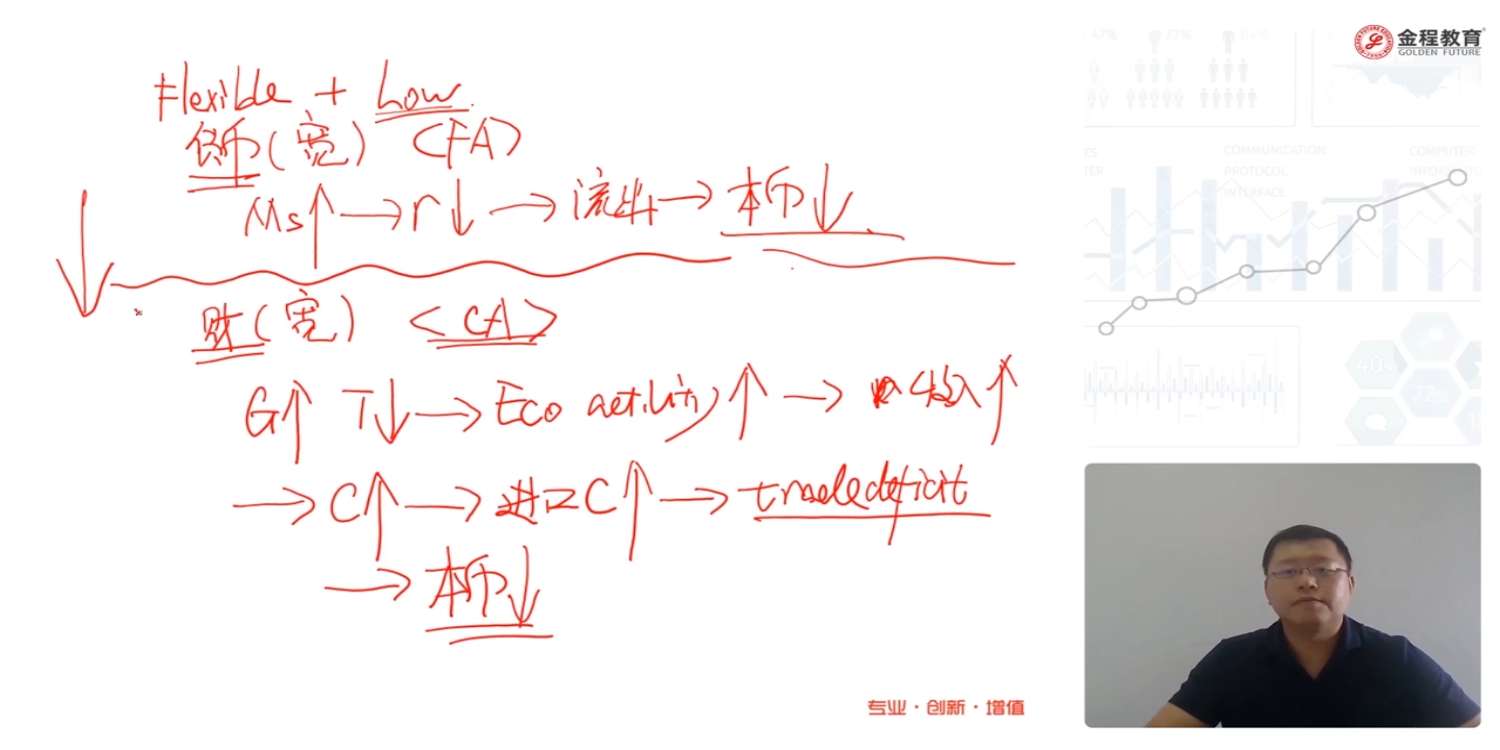 金程教育
GOLDEN FUTURE
Flexible + Low
货币(宽) <FA>
Ms↑ → r↓ → 流出 → 本币↓
财(宽) <CA>
G↑ T↓ → Eco activity↑ → 收入↑
→ C↑ → 进口C↑ → trade deficit
→ 本币↓
COMMUNICATION
PROTOCOL
INTERFACE
专业·创新·增值